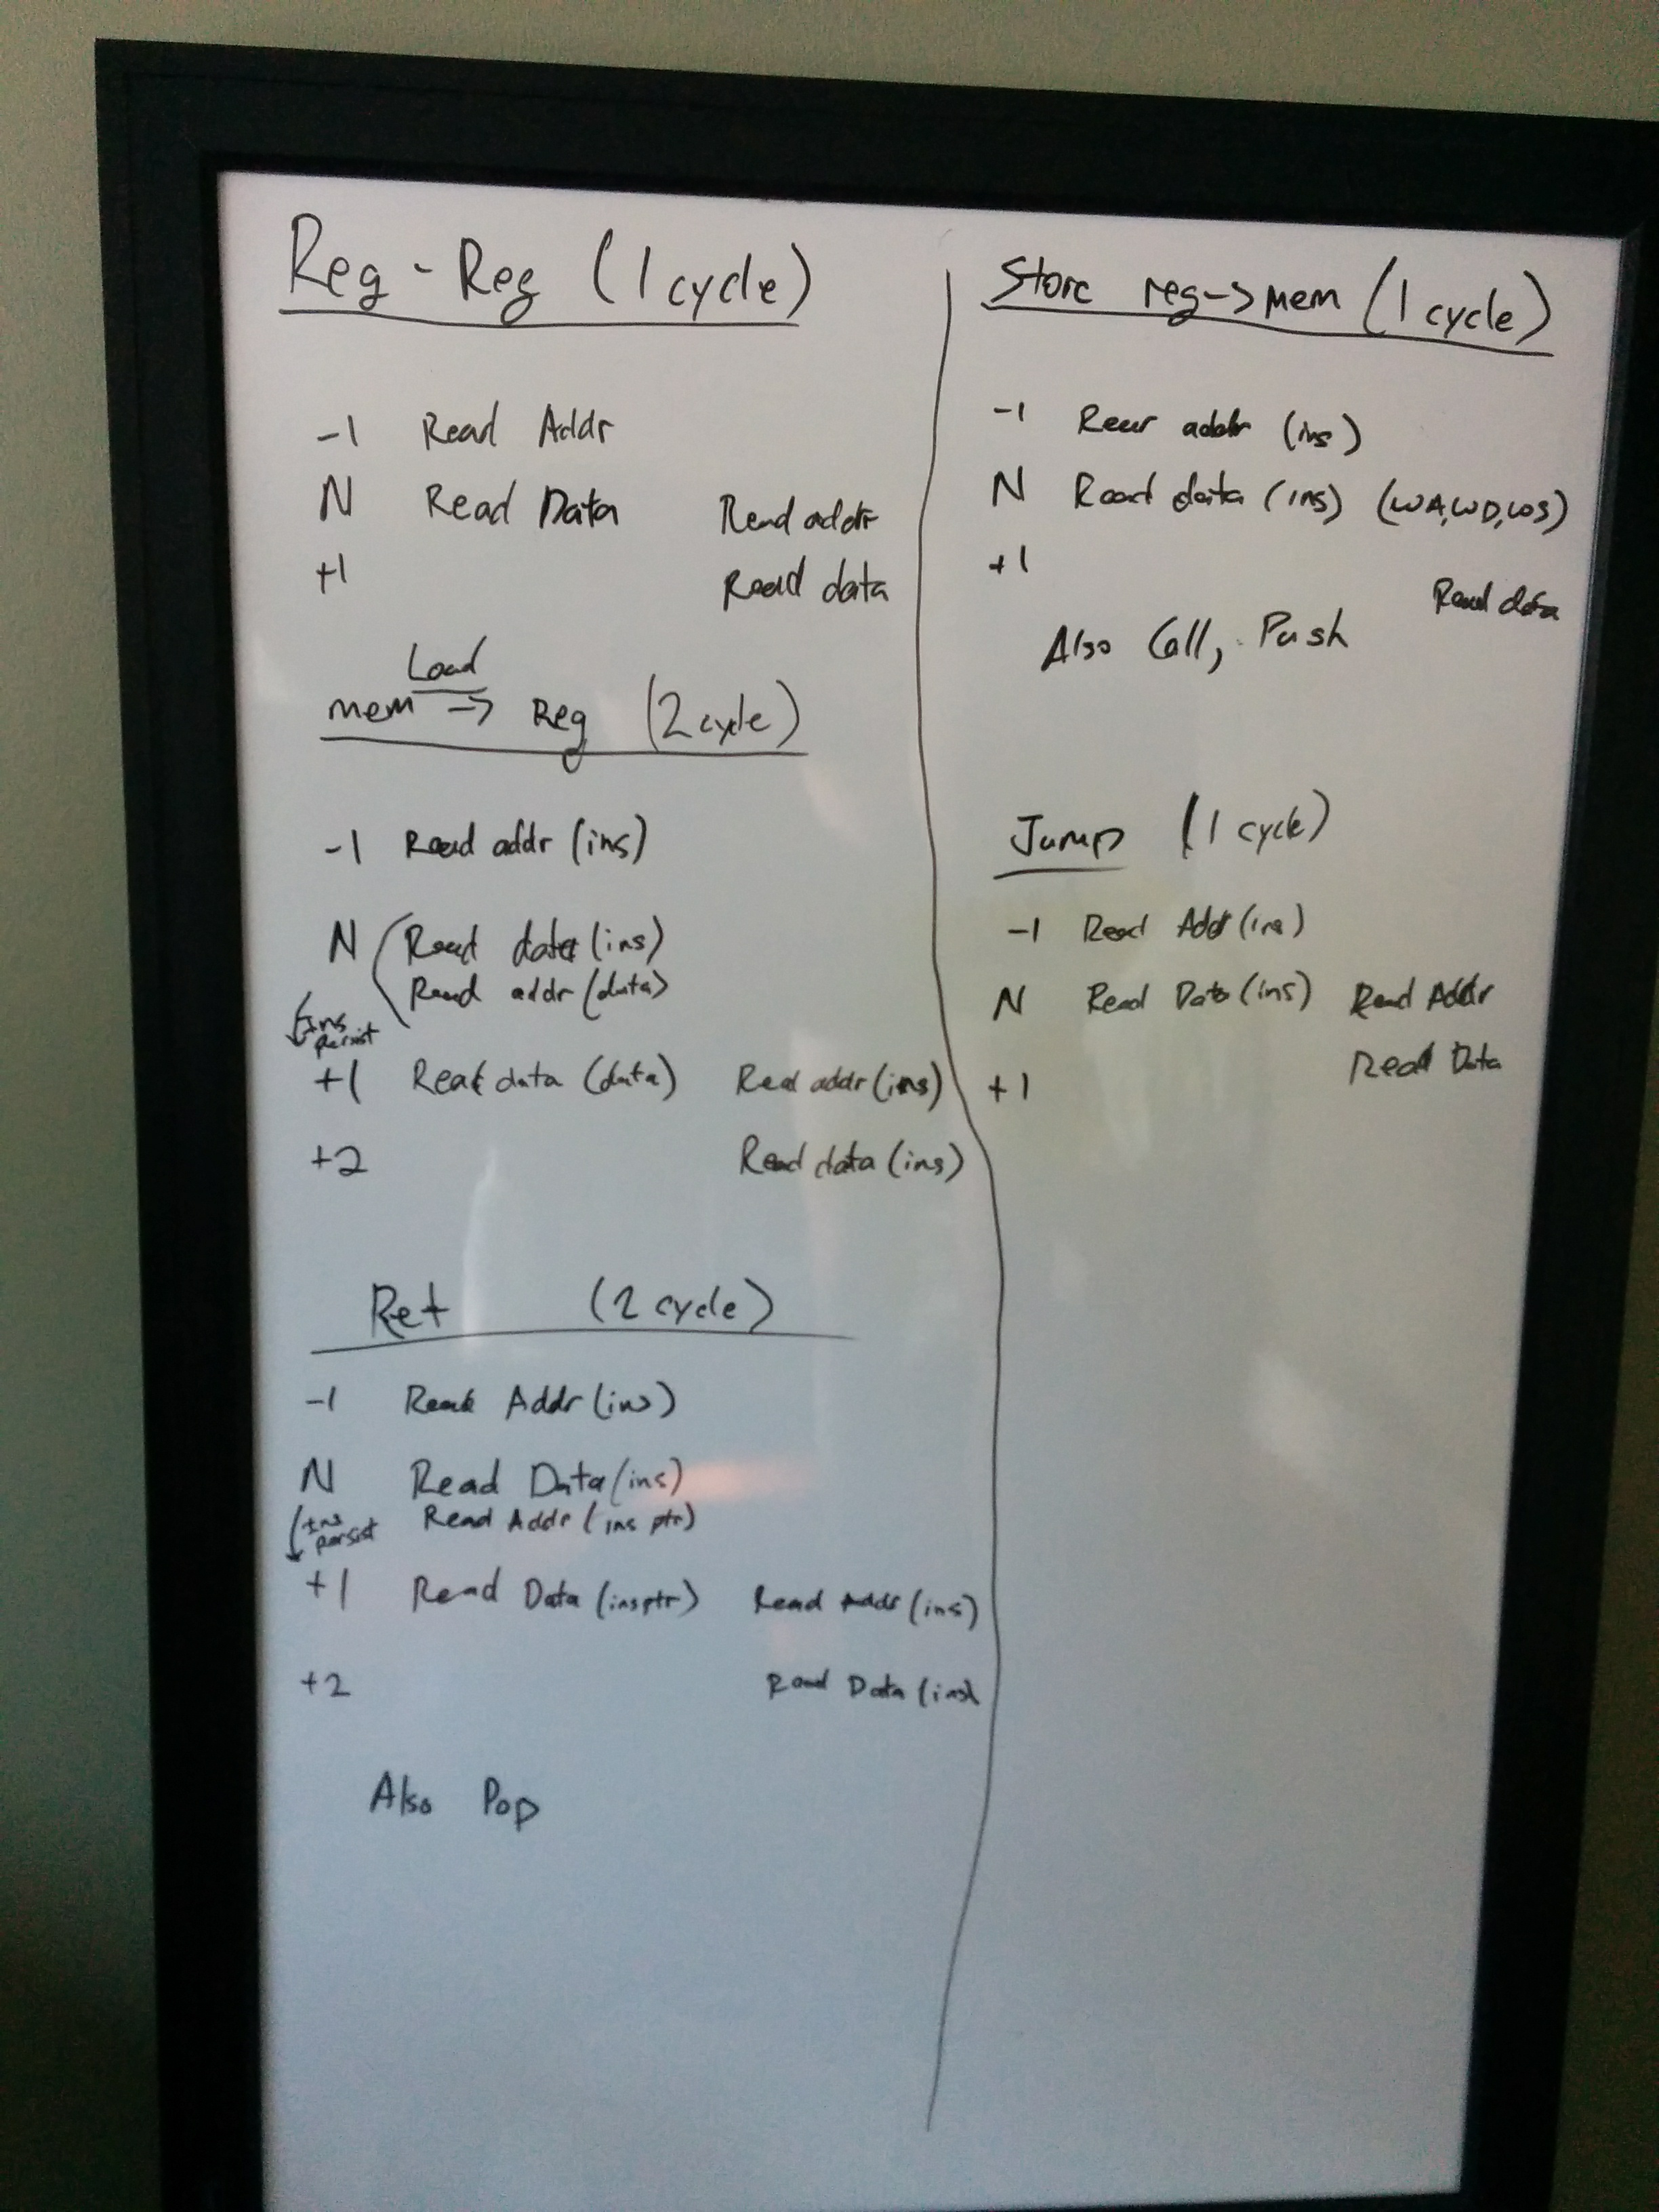 Reg - Reg (1 cycle)
-1 Read Addr
N Read Data Read addr
+1 Read data
Load
mem -> Reg (2 cycle)
-1 Read addr (ins)
N Read data (ins)
Read addr (data)
Ins
persist
+1 Read data (data) Read addr (ins)
+2 Read data (ins)
Ret (2 cycle)
-1 Read Addr (ins)
N Read Data (ins)
Ins
persist
Read Addr (ins ptr)
+1 Read Data (insptr) Read Addr (ins)
+2 Read Data (ins)
Also Pop
Store reg->mem (1 cycle)
-1 Read addr (ins)
N Read data (ins) (WA,WD,WS)
+1 Read data
Also Call, Push
Jump (1 cycle)
-1 Read Addr (ins)
N Read Data (ins) Read Addr
+1 Read Data